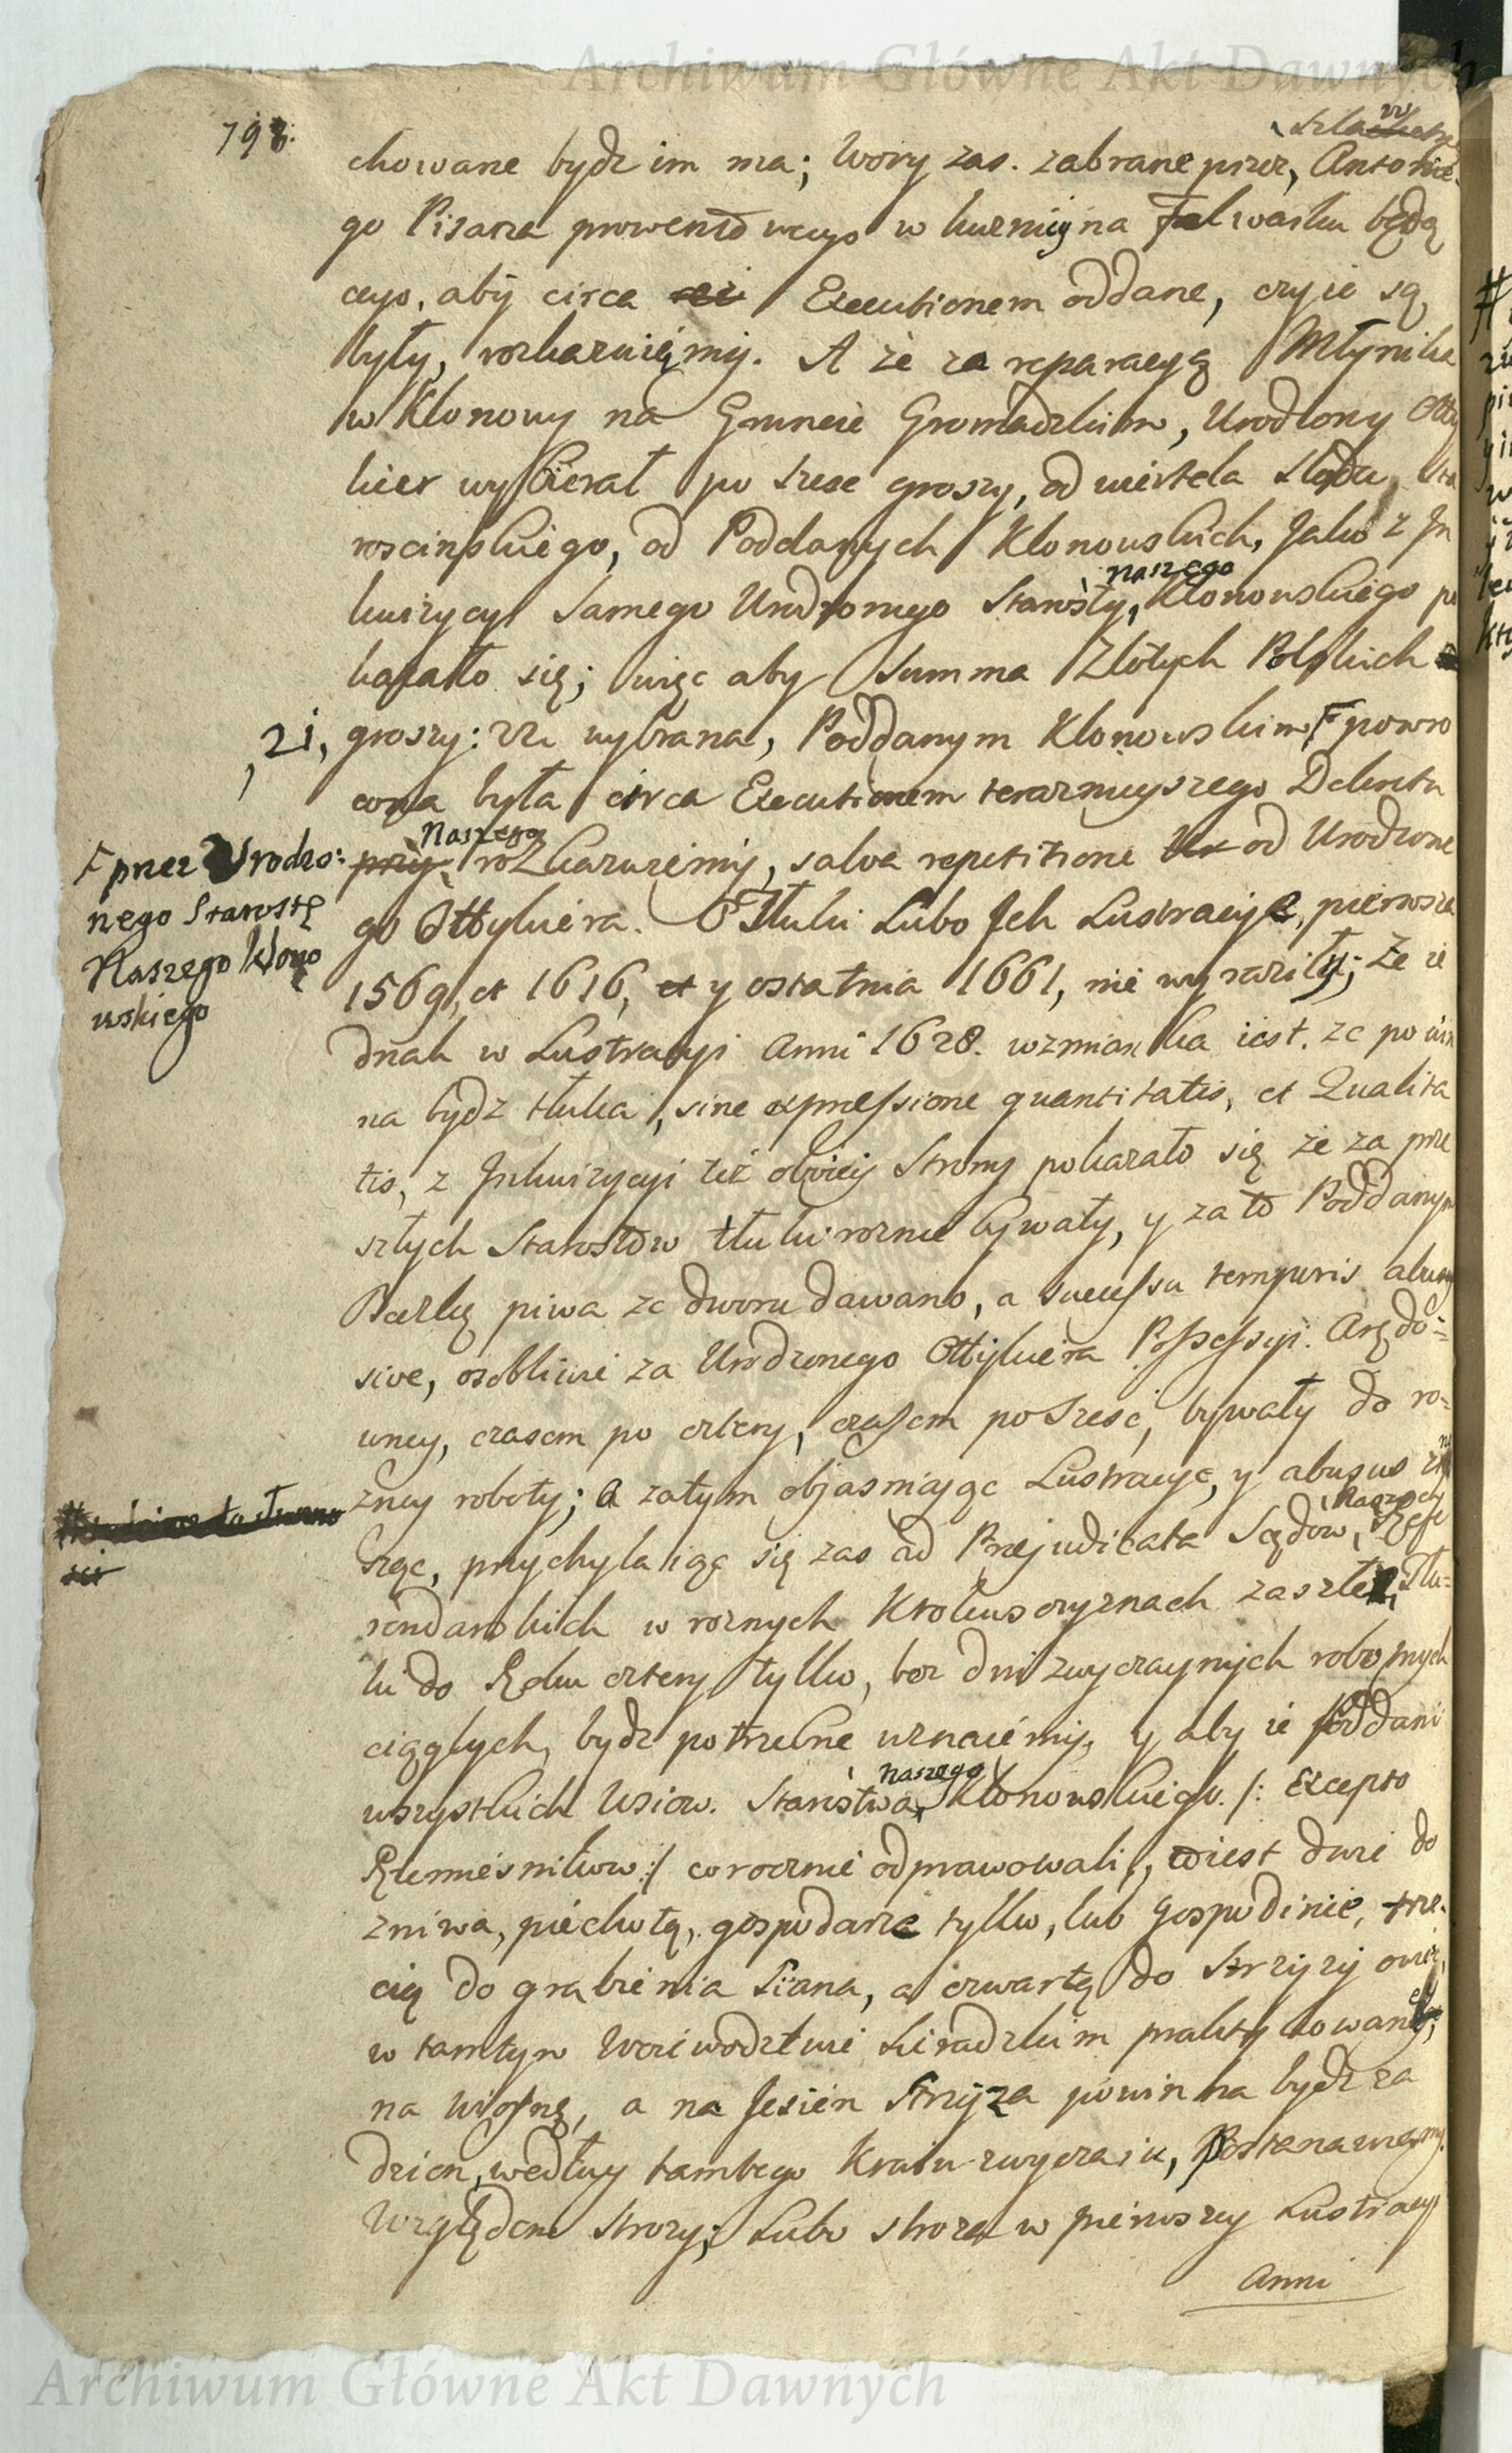 Archiwum Główne Akt Dawnych
793.
chowane bydz im ma; Wory zas. zabrane przez, Antonie
go Pisarza prowentowego w kuznicy na Folwarku będą
cego, aby circa Executionem oddane, czyie są,
były, rozkazuięmy. A ze za reparacyą Młynika
w Klonowy na Gruncie Gromadzkim, Urodzony Otty
kier wybierał po szesc groszy, od wiertela słodu, sta
roscinskiego, od Poddanych Klonowskich, Jako z In
kwizycyi samego Urodzonego Starosty, Naszego Klonowskiego po
kazało się; więc aby Summa Złotych Polskich
21, groszy: wybrana, Poddanym Klonowskim powro
cona była circa Executionem teraznieyszego Dekretu
Naszego rozkazuiemy, salva repetitione od Urodzone
F przez Urodzo:
nego Starostę
Naszego Klono
wskiego
go Ottykiera. O Tłuki Lubo Ich Lustracye, pierwsza
1569, et 1616, et y ostatnia 1661, nie wyraziły; Ze ie
dnak w Lustracyi Anni 1628. wzmianka iest. ze powin
na bydz tłuka, sine expressione quantitatis, et Qualita
tis, z Inkwizycyi też oboiey Strony pokazało się że za prze
szłych Starostow tłuki rozne bywały, y za to Poddanym
Beczkę piwa ze dworu dawano, a successu temporis abu
sive, osobliwie za Urodzonego Ottykiera Possessyi. Arędo=
wney, czasem po cztery, czasem po szesć, bywały do ro=
zney roboty; a zatym objasniaiąc Lustracye, y abusus zn
sząc, przychylaiąc się zas ad Prejudicata Sądow, Naszych Refe
rendarskich w roznych Krolewszczyznach zaszłe, Tłu=
ki do Roku cztery tylko, bez dni zwyczaynych robotnych
ciągłych, bydz potrzebne uznaiemy, y aby ie Poddani
wszystkich Wsiow. Starostwa, Naszego Klonowskiego. /: Excepto
Rzemiesnikow :/ corocznie odprawowali, to iest dwie do
zniwa, piechotą, gospodarze tylko, lub Gospodinie, trze=
cią do grabienia siana, a czwartą do strzyzy owiec,
w tamtym Woiewodztwie Sieradzkim praktykowaney,
na wiosnę, a na Jesień Strzyza powinna bydz za
dzien, według tamtego Kraiu zwyczaiu, Postanawiamy.
Względem Strozy; Lubo stroza w pierwszey Lustracyi
Anni
Archiwum Główne Akt Dawnych